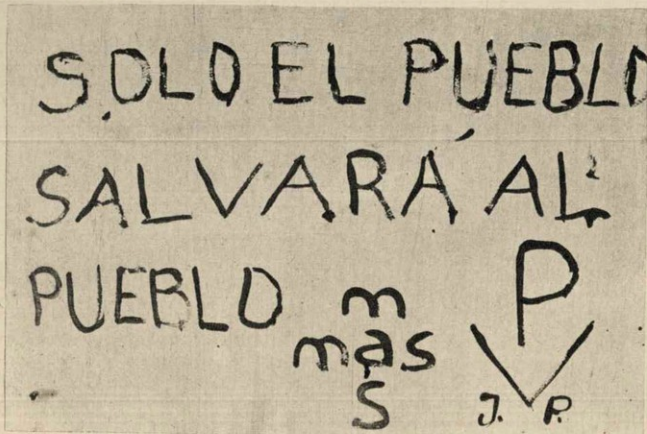 SOLO EL PUEBLO
SALVARÁ AL
PUEBLO
m
mas
s
P
V
J. P.